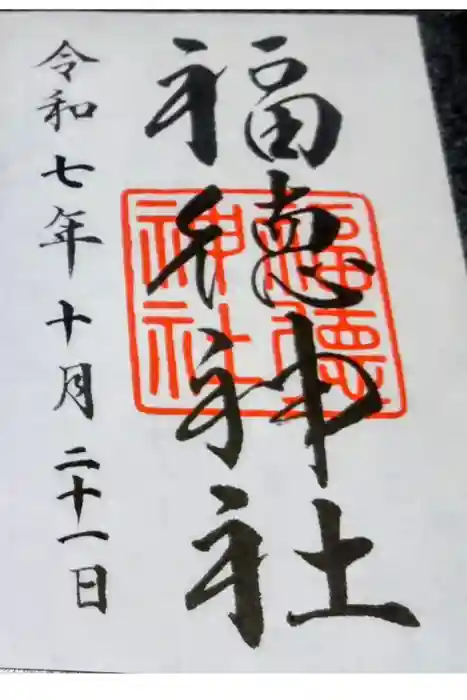 福徳神社
令和七年十月二十一日
福徳
神社